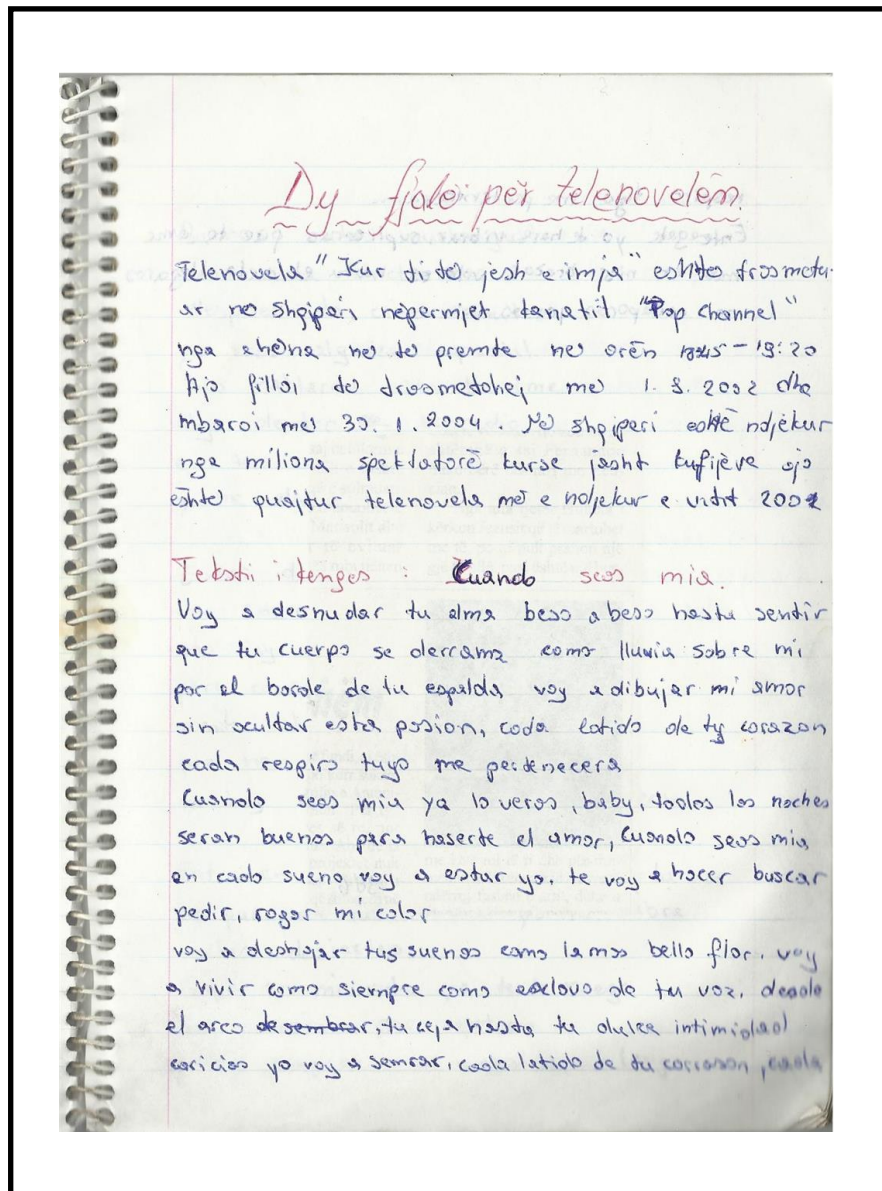 Dy fjalë për telenovelën.
Telenovela "Kur ti të jesh e imja" eshtë trasmetu-
ar në Shqipëri nëpermjet kanalit "Pop channel"
nga ehëna në të premte në orën 18:45 - 19:20
Ajo filloi të trasmetohej më 1. 9. 2002 dhe
mbaroi më 30. 1. 2004. Në Shqiperi eshtë ndjekur
nga miliona spektatorë kurse jasht kufijëve ajo
eshtë quajtur telenovela më e ndjekur e vitit 2002
Teksti i kenges : Cuando seas mia.
Voy a desnudar tu alma beso a beso hasta sentir
que tu cuerpo se derrama como lluvia sobre mi
por el borde de tu espalda voy a dibujar mi amor
sin ocultar esta pasion, cada latido de ty corazon
cada respiro tuyo me pertenecera
Cuando seas mia ya lo veras, baby, todas las noches
seran buenas para haserte el amor, Cuando seas mia
en cada sueno voy a estar yo, te voy a hacer buscar
pedir, rogar mi calor
voy a deshojar tus suenos como la mas bella flor. voy
a vivir como siempre como esclavo de tu voz. desde
el arco de sembrar, tu ceja hasta tu dulce intimidad
caricias yo voy a semrar, cada latido de tu corrason, cada